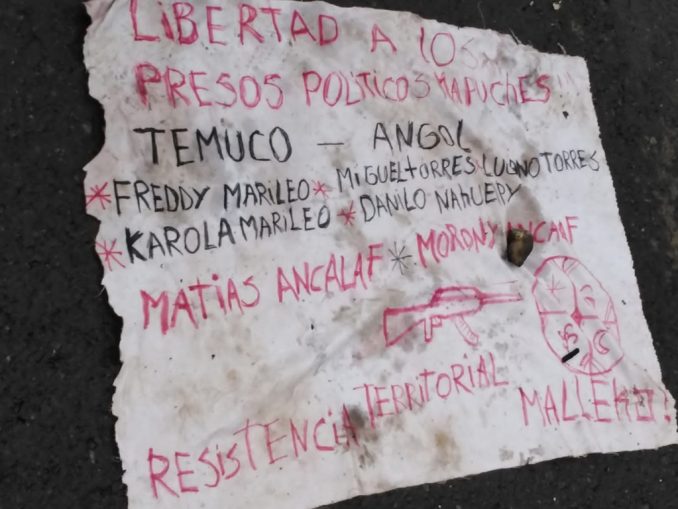 LIBERTAD A LOS
PRESOS POLITICOS MAPUCHES!!!
TEMUCO — ANGOL
*FREDDY MARILEO * MIGUEL TORRES LUCIANO TORRES
*KAROLA MARILEO *DANILO NAHUEPY
MATIAS ANCALAF * MORONY ANCALAF
RESISTENCIA TERRITORIAL MALLEKO!